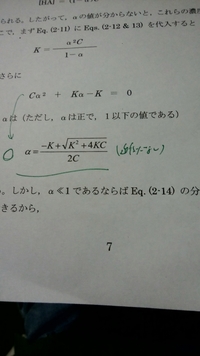 [HA] = (1-α)C
られる。したがって，αの値が分からないと，これらの濃
こで，まず Eq. (2-11) に Eqs. (2-12 & 13) を代入すると
K = α²C / 1 − α
さらに
Cα² + Kα − K = 0
αは（ただし，αは正で，1以下の値である）
α = −K + √K² + 4KC / 2C
しかし，α ≪ 1 であるならば Eq. (2-14) の分
できるから，
7